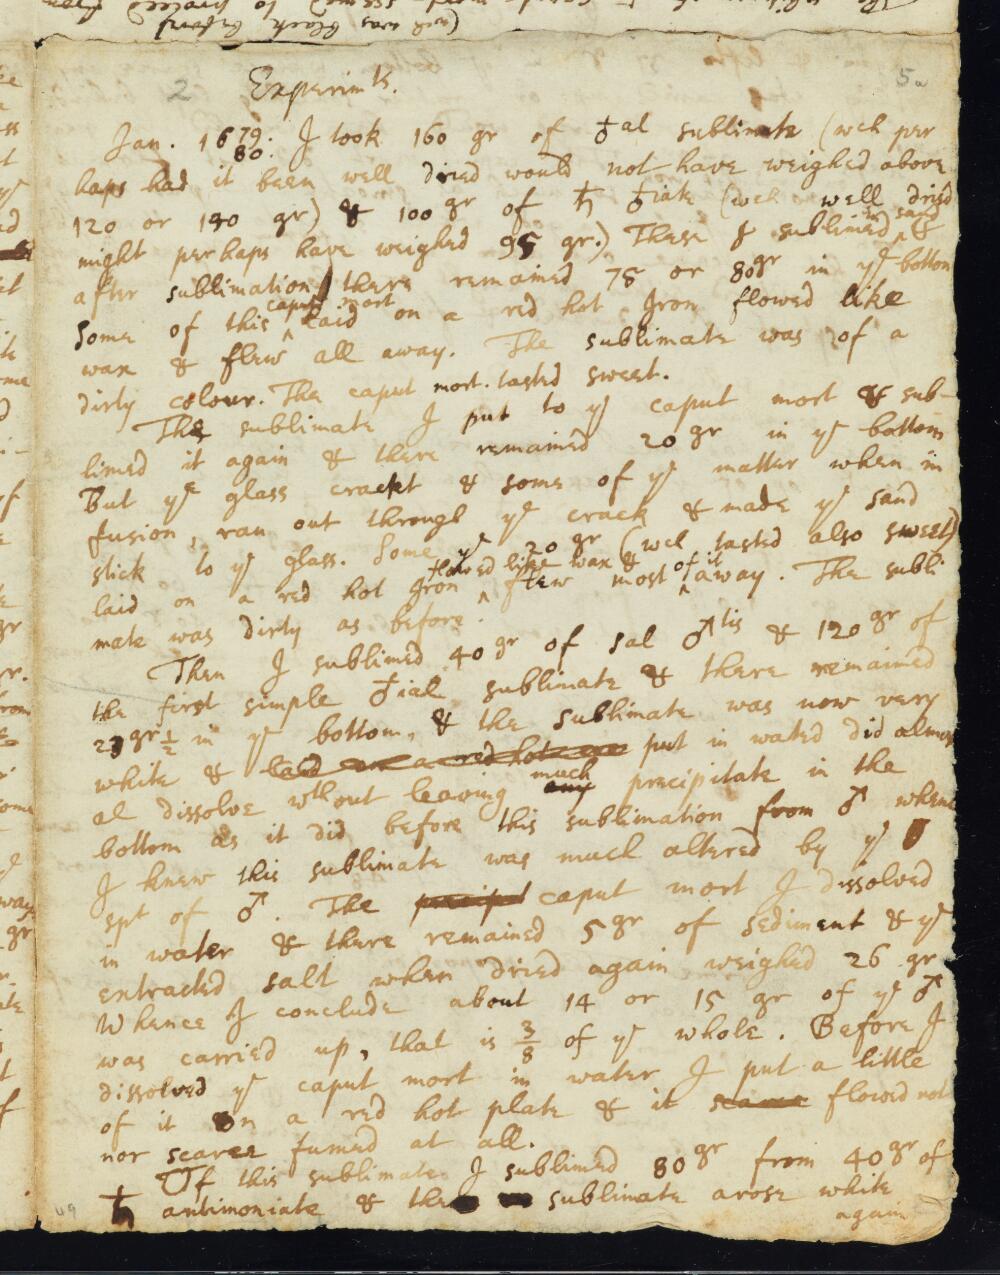 2 Experimts. 5a
Jan. 16 79/80. I took 160 gr of ♁al sublimate (wch per
haps had it been well dried would not have weighed above
120 or 140 gr) & 100 gr of ♄ ♁iate (wch well dried
might perhaps have weighed 95 gr.) These I sublimed in sand &
after sublimation there remained 75 or 80gr in ye bottom
Some of this caput mort laid on a red hot Iron flowed like
wax & flew all away. The sublimate was of a
dirty colour. The caput mort. tasted sweet.
The sublimate I put to ye caput mort & sub-
limed it again & there remained 20 gr in ye bottom
But ye glass crackt & some of ye matter when in
fusion, ran out through ye crack & made ye sand
stick to ye glass. Some ye 20 gr (wch tasted also sweet)
laid on a red hot Iron flowed like wax & flew most of it away. The subli
mate was dirty as before.
Then I sublimed 40 gr of sal ♂tis & 120 gr of
the first simple ♁ial sublimate & there remained
23 gr 1/2 in ye bottom, & the sublimate was now very
white & laid on a red hot put in water did almost
al dissolve wthout leaving any much precipitate in the
bottom as it did before this sublimation from ♂ whence
I knew this sublimate was much altered by ye
spt of ♂. The precipit caput mort I dissolved
in water & there remained 5 gr of sediment & ye
extracted salt when dried again weighed 26 gr
Whence I conclude about 14 or 15 gr of ye ♂
was carried up, that is 3/8 of ye whole. Before I
dissolved ye caput mort in water I put a little
of it on a red hot plate & it flowed not
nor scarce fumed at all.
Of this sublimate I sublimed 80 gr from 40 gr of
♄ antimoniate & the sublimate arose white
again
49